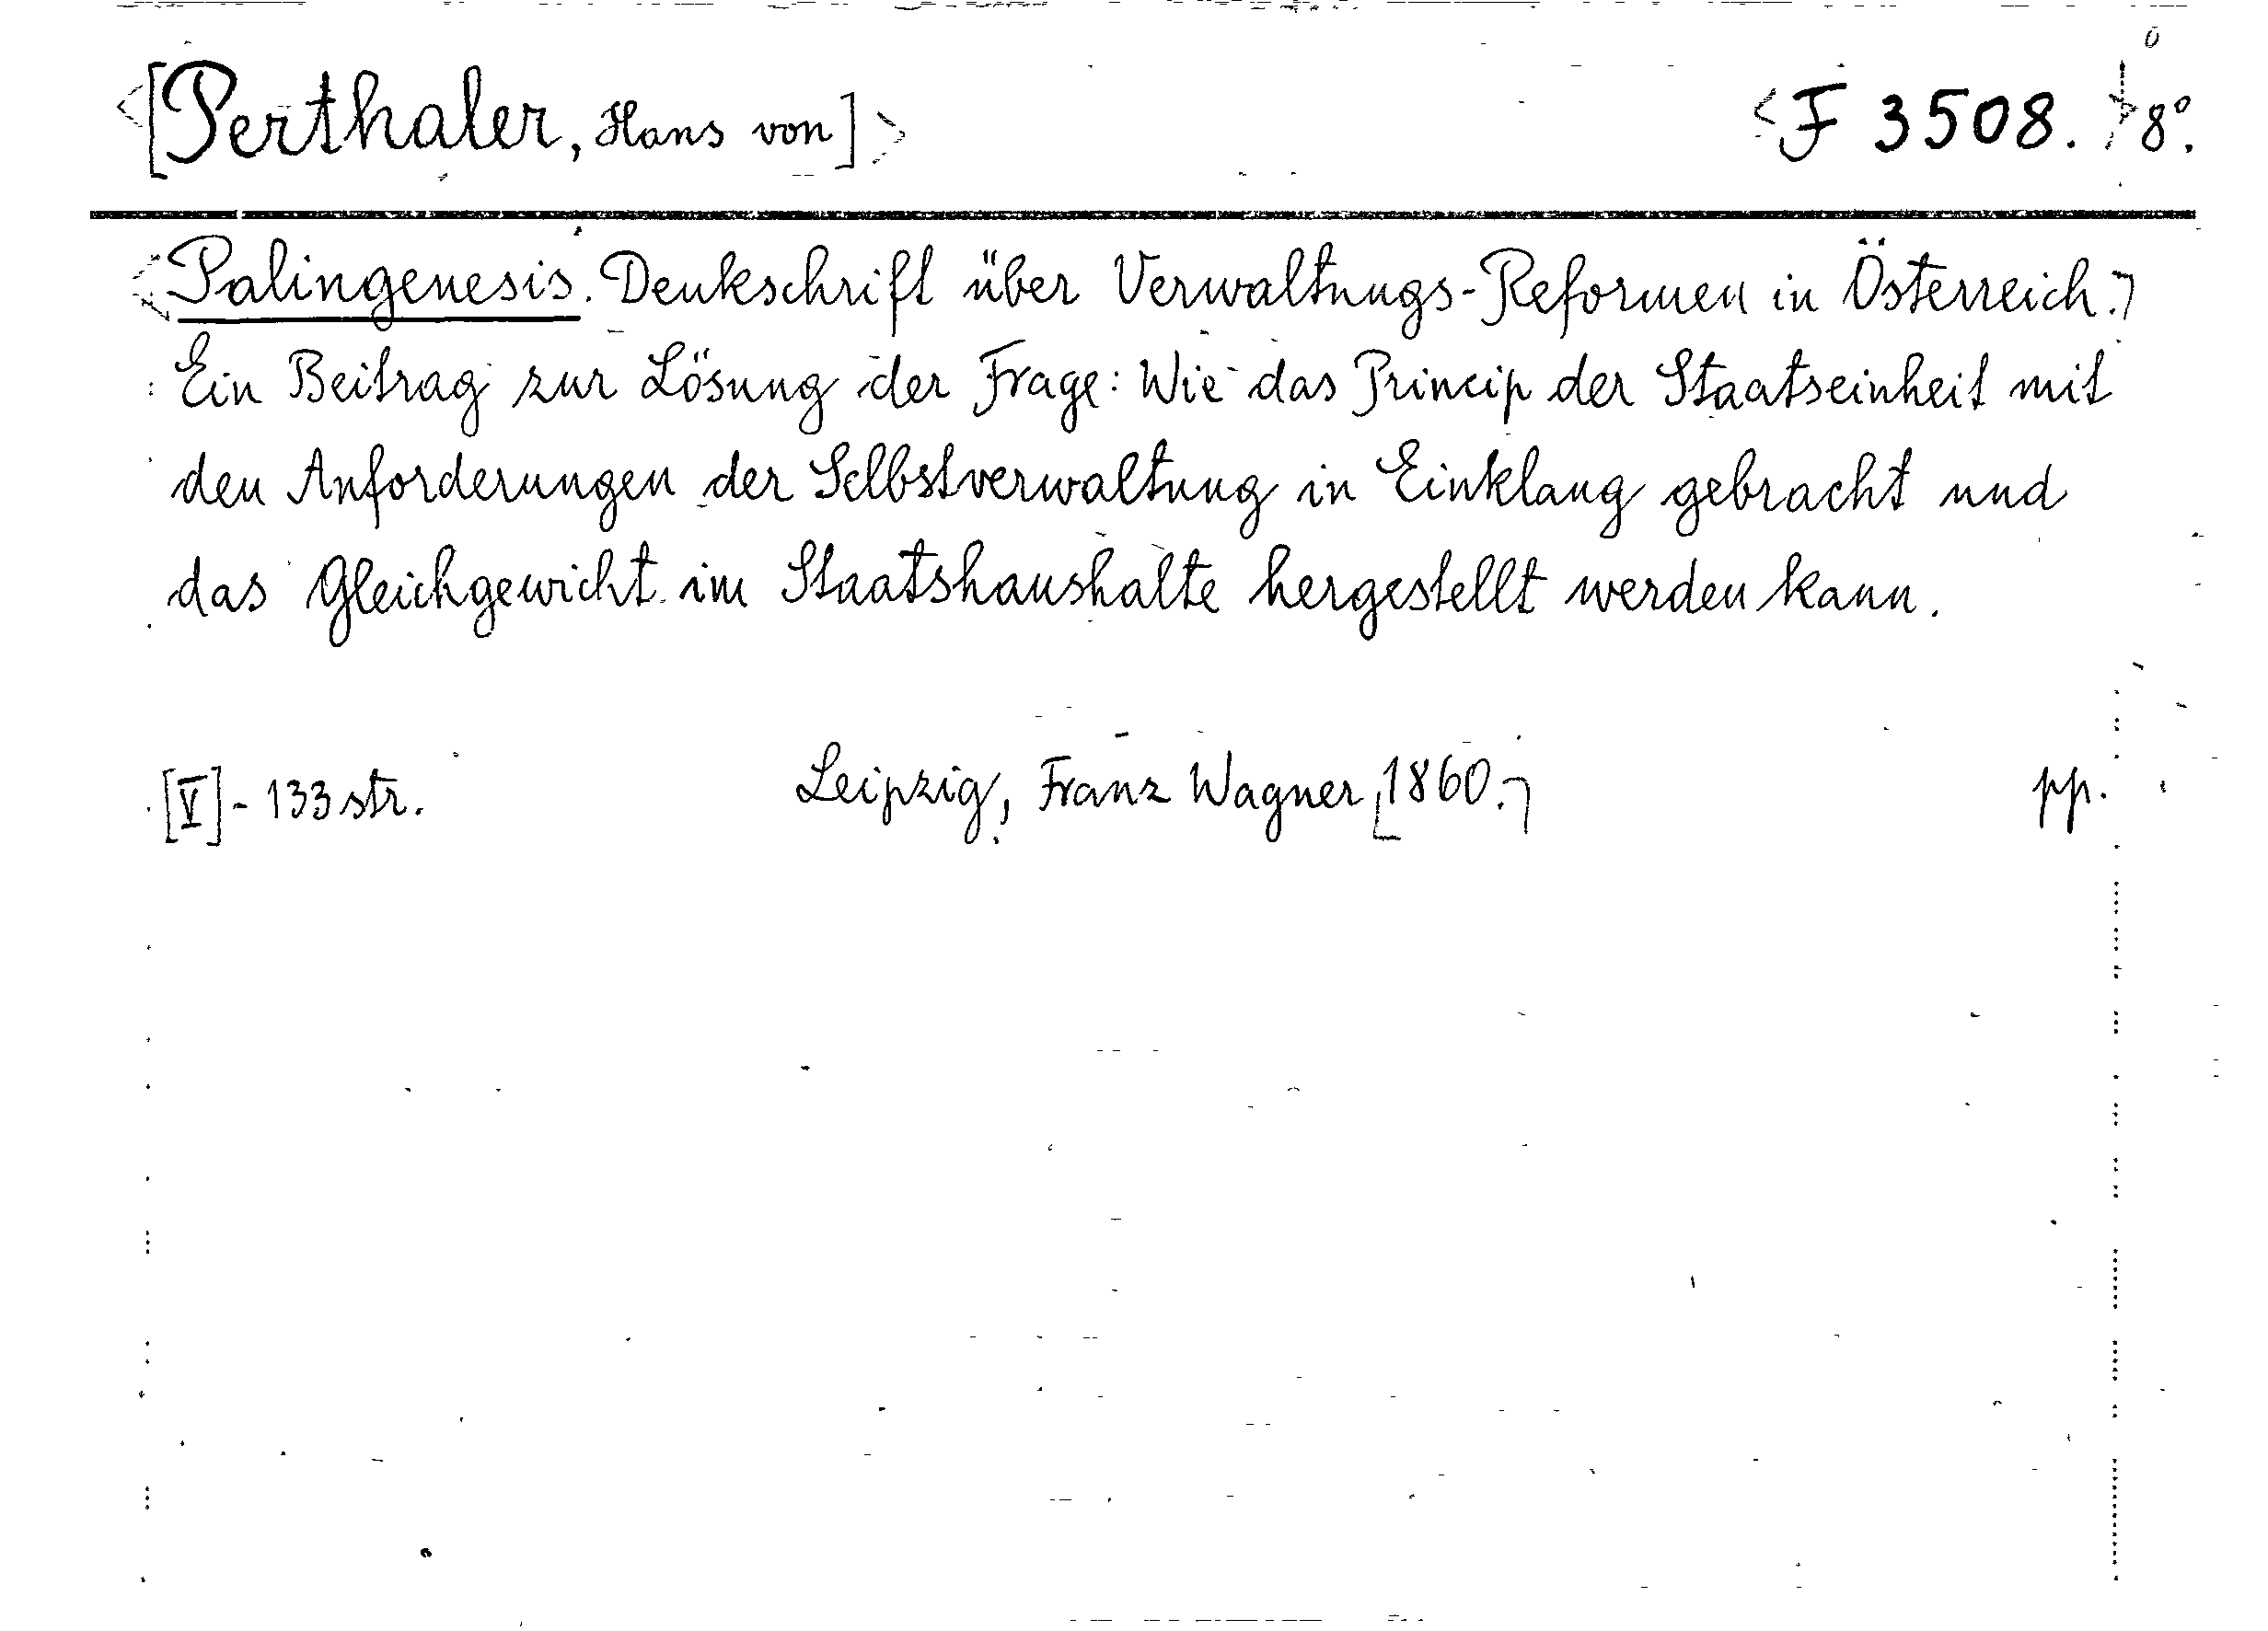 <[Perthaler, Hans von]> <F 3508.> 8°.
<Palingenesis. Denkschrift über Verwaltungs-Reformen in Österreich.>
Ein Beitrag zur Lösung der Frage: Wie das Princip der Staatseinheit mit
den Anforderungen der Selbstverwaltung in Einklang gebracht und
das Gleichgewicht im Staatshaushalte hergestellt werden kann.
[V] - 133 str. Leipzig, Franz Wagner [1860.] pp.